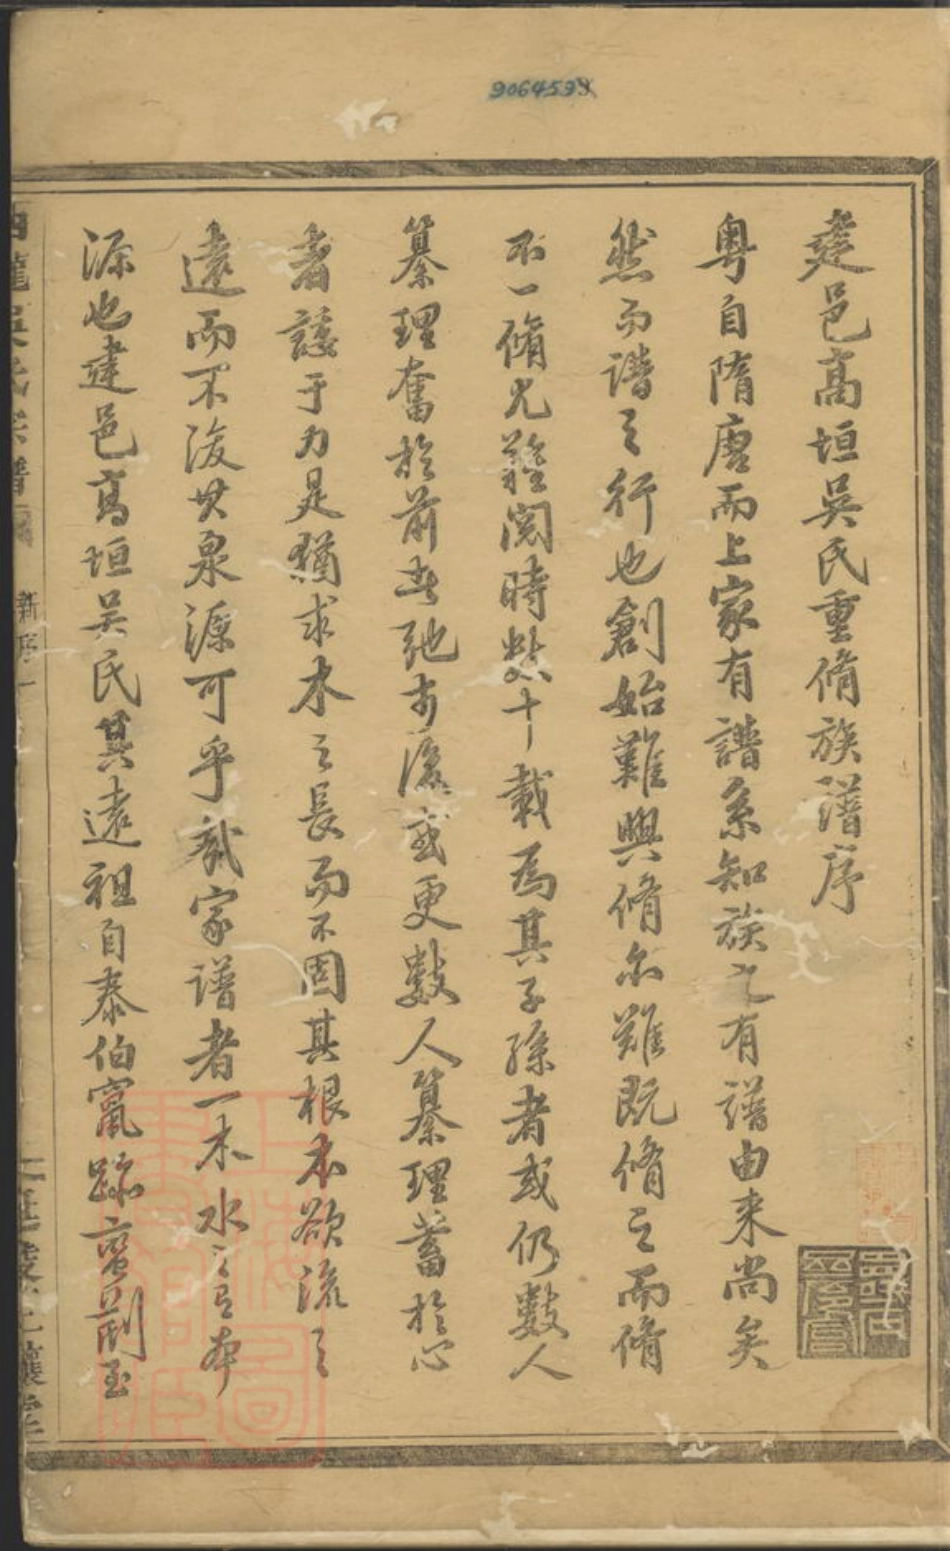 9064598
建邑高垣吳氏重脩族譜序
粵自隋唐而上家有譜系知族之有譜由来尚矣
然而譜之行也創始難興脩亦難既脩之而脩
不一脩尤難閱時数十載為其子孫者或仍數人
纂理奮於前者弛於後或更數人纂理蓄於心
者諉于力是猶求木之長而不固其根本欲流之
遠而不浚其泉源可乎哉家譜者一木水之有本
源也建邑高垣吳氏其遠祖自泰伯竄跡蛮荆至
吳氏宗譜
新序一
上海圖書館藏